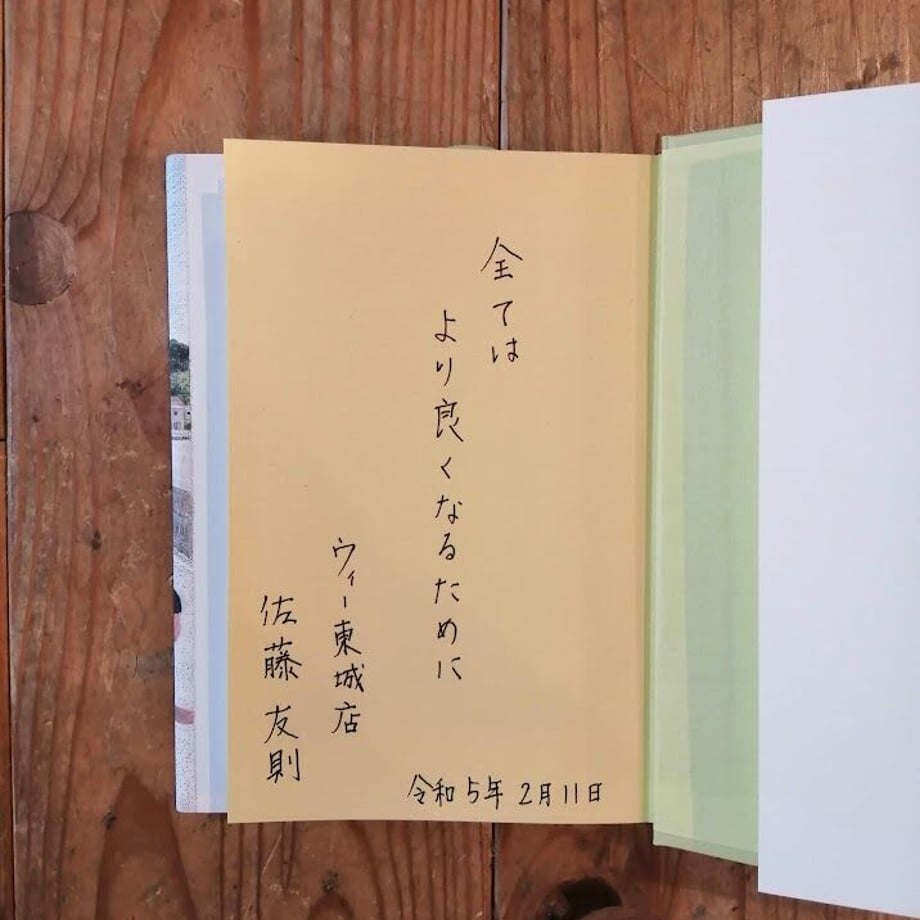 全ては
より良くなるために
ウィー東城店
佐藤友則
令和5年2月11日